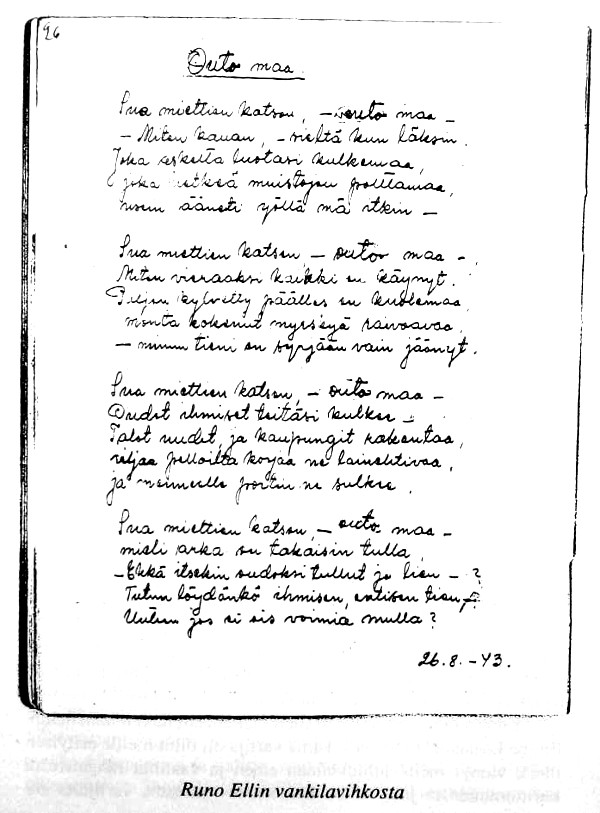 96
Outo maa
Sua miettien katson, – outo maa –
– Miten kauan, – sieltä kun läksin.
Joka askelta luotasi kulkemaa,
joka hetkeä muistojen polttamaa,
usein ääneti yöllä mä itkin –
Sua miettien katson, – outo maa –,
Miten vieraaksi kaikki on käynyt.
Paljon kylvetty päälles on kuolemaa,
monta kokenut myrskyä raivoavaa,
– minun tieni on syrjään vain jäänyt.
Sua miettien katson, – outo maa –
Oudot ihmiset teitäsi kulkee –
Talot uudet, ja kaupungit rakentaa,
viljaa pelloilta korjaa ne lainehtivaa,
ja menneelle portin ne sulkee.
Sua miettien katson, – outo maa –
mieli arka on takaisin tulla,
– Ehkä itsekin oudoksi tullut jo lien – ?
Tutun löydänkö ihmisen, entisen tien, – ?
Uuteen jos ei ois voimia mulla?
26.8.–43.
Runo Ellin vankilavihkosta